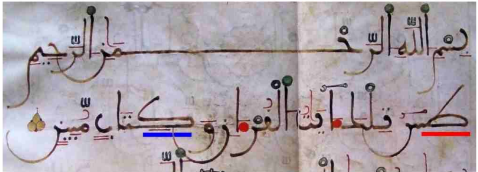 بسم الله الرحمن الرحيم
طس تلك ايت القران وكتاب مبين